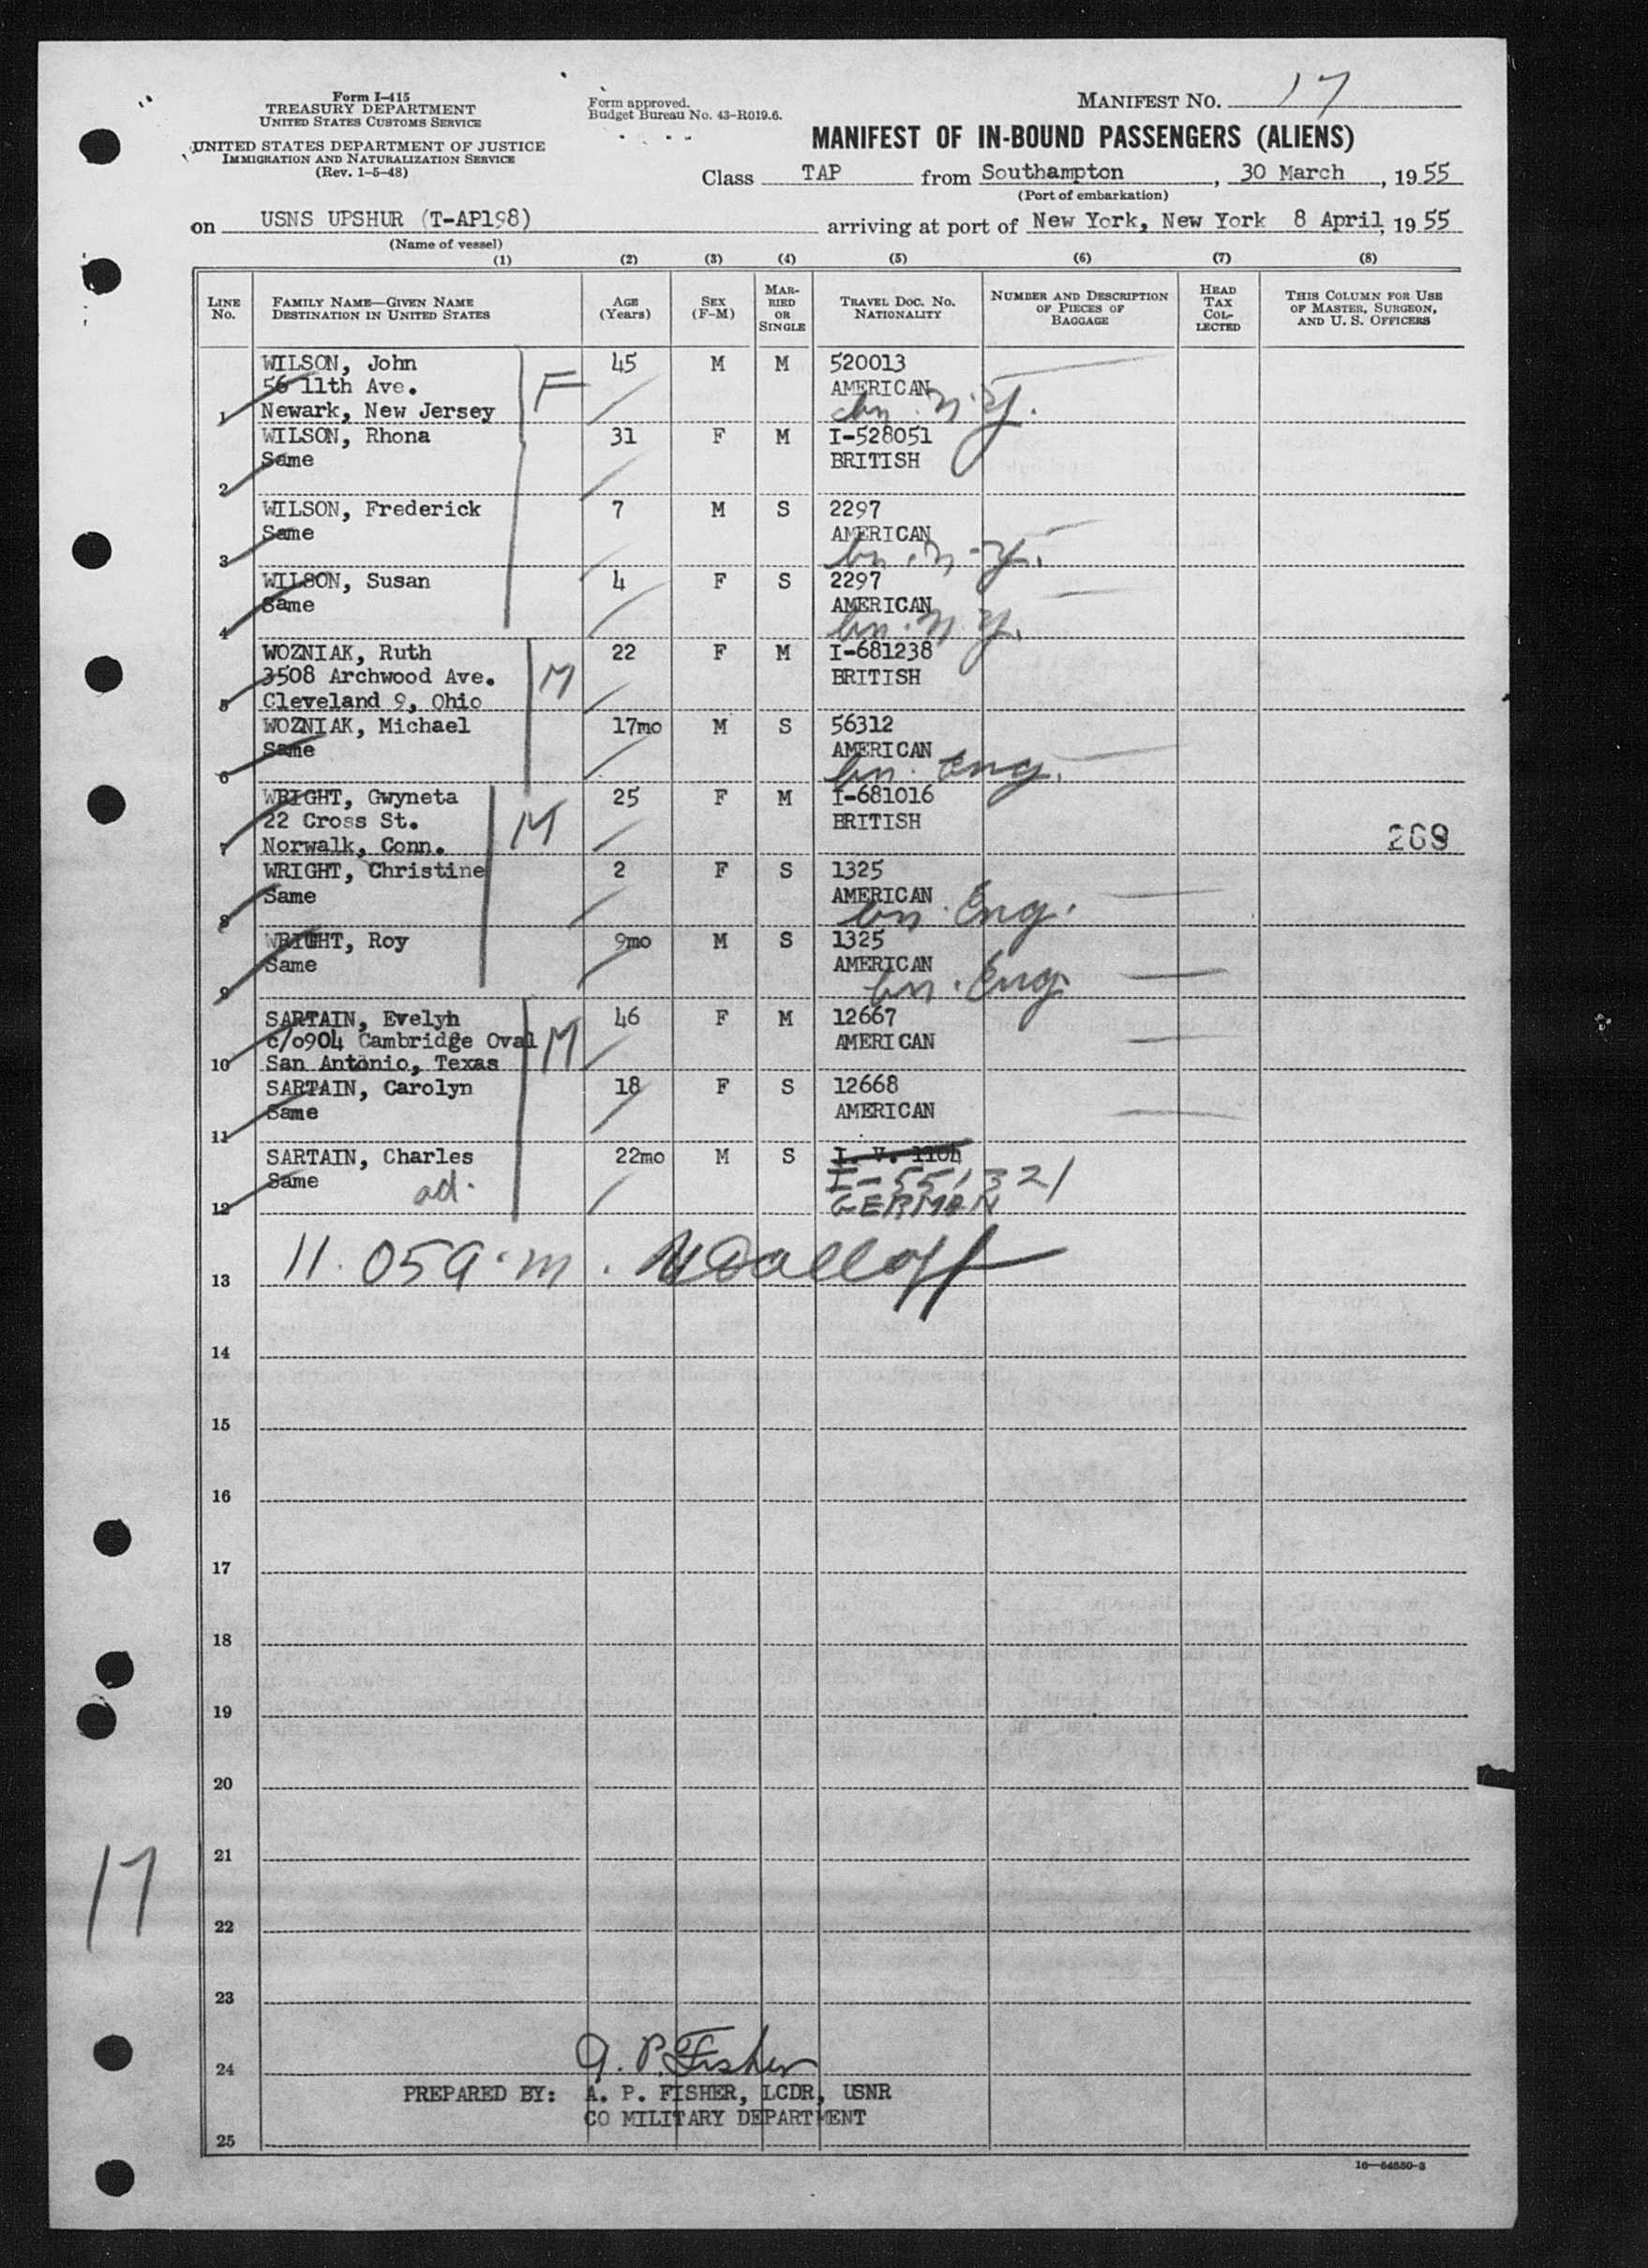 Form I-415
TREASURY DEPARTMENT
UNITED STATES CUSTOMS SERVICE
UNITED STATES DEPARTMENT OF JUSTICE
IMMIGRATION AND NATURALIZATION SERVICE
(Rev. 1-5-48)
Form approved.
Budget Bureau No. 43-R019.6.
MANIFEST NO. 17
MANIFEST OF IN-BOUND PASSENGERS (ALIENS)
Class TAP from Southampton, 30 March, 1955
(Port of embarkation)
on USNS UPSHUR (T-AP198) arriving at port of New York, New York 8 April, 1955
(Name of vessel)
(1) (2) (3) (4) (5) (6) (7) (8)
LINE No. FAMILY NAME—GIVEN NAME DESTINATION IN UNITED STATES AGE (Years) SEX (F-M) MARRIED OR SINGLE TRAVEL DOC. NO. NATIONALITY NUMBER AND DESCRIPTION OF PIECES OF BAGGAGE HEAD TAX COLLECTED THIS COLUMN FOR USE OF MASTER, SURGEON, AND U. S. OFFICERS
WILSON, John 45 M M 520013
56 11th Ave. F AMERICAN
1 Newark, New Jersey bn. N.Y.
WILSON, Rhona 31 F M I-528051
Same BRITISH
2
WILSON, Frederick 7 M S 2297
Same AMERICAN
3 bn. N.Y.
WILSON, Susan 4 F S 2297
Same AMERICAN
4 bn. N.Y.
WOZNIAK, Ruth 22 F M I-681238
3508 Archwood Ave. M BRITISH
5 Cleveland 9, Ohio
WOZNIAK, Michael 17mo M S 56312
Same AMERICAN
6 bn. Eng.
WRIGHT, Gwyneta 25 F M I-681016
22 Cross St. M BRITISH
7 Norwalk, Conn. 269
WRIGHT, Christine 2 F S 1325
Same AMERICAN
8 bn. Eng.
WRIGHT, Roy 9mo M S 1325
Same AMERICAN
9 bn. Eng.
SARTAIN, Evelyn 46 F M 12667
c/o904 Cambridge Oval M AMERICAN
10 San Antonio, Texas
SARTAIN, Carolyn 18 F S 12668
Same AMERICAN
11
SARTAIN, Charles 22mo M S I. V. 1104
Same ad. I-551321
12 GERMAN
13 11.05 a.m.
14
15
16
17
18
19
20
21
17
22
23
24 A. P. Fisher
PREPARED BY: A. P. FISHER, LCDR, USNR
CO MILITARY DEPARTMENT
25
16—54550-3